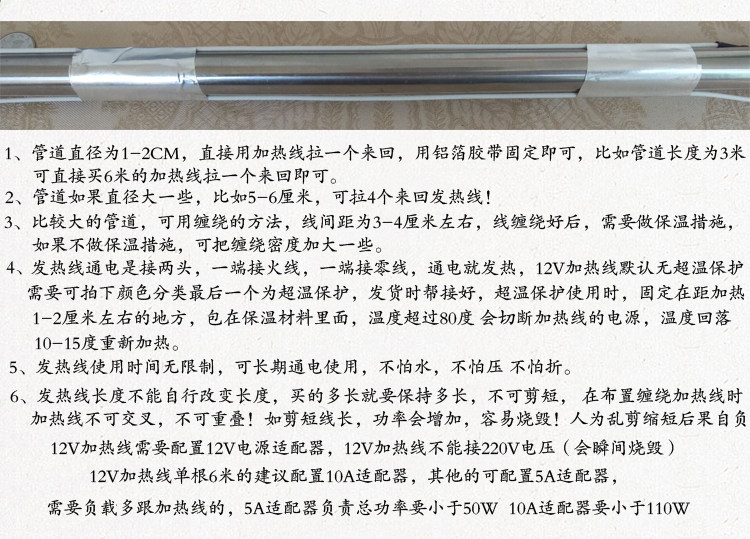 1、管道直径为1-2CM，直接用加热线拉一个来回，用铝箔胶带固定即可，比如管道长度为3米
可直接买6米的加热线拉一个来回即可。
2、管道如果直径大一些，比如5-6厘米，可拉4个来回发热线！
3、比较大的管道，可用缠绕的方法，线间距为3-4厘米左右，线缠绕好后，需要做保温措施，
如果不做保温措施，可把缠绕密度加大一些。
4、发热线通电是接两头，一端接火线，一端接零线，通电就发热，12V加热线默认无超温保护
需要可拍下颜色分类最后一个为超温保护，发货时帮接好，超温保护使用时，固定在距加热
1-2厘米左右的地方，包在保温材料里面，温度超过80度 会切断加热线的电源，温度回落
10-15度重新加热。
5、发热线使用时间无限制，可长期通电使用，不怕水，不怕压 不怕折。
6、发热线长度不能自行改变长度，买的多长就要保持多长，不可剪短， 在布置缠绕加热线时
加热线不可交叉，不可重叠！如剪短线长，功率会增加，容易烧毁！人为乱剪缩短后果自负
12V加热线需要配置12V电源适配器，12V加热线不能接220V电压（会瞬间烧毁）
12V加热线单根6米的建议配置10A适配器，其他的可配置5A适配器，
需要负载多跟加热线的，5A适配器负责总功率要小于50W 10A适配器要小于110W